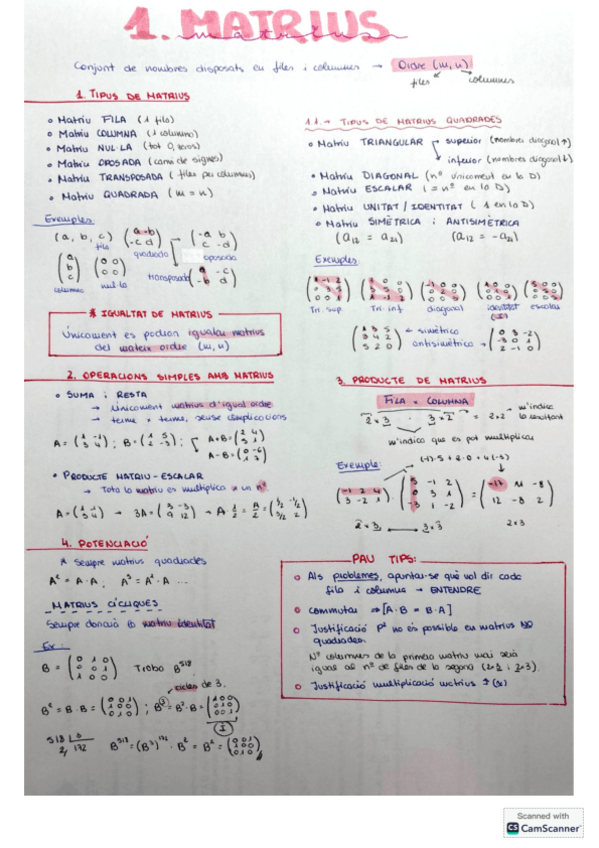 1. MATRIUS
matrius
Conjunt de nombres disposats en files i columnes → Ordre (m, n)
files columnes
1. TIPUS DE MATRIUS
• Matriu FILA (1 fila)
• Matriu COLUMNA (1 columna)
• Matriu NUL·LA (tot 0, zeros)
• Matriu OPOSADA (canvi de signes)
• Matriu TRANSPOSADA (files per columnes)
• Matriu QUADRADA (m = n)
Exemples:
(a, b, c) fila
(a -b
-c d) quadrada
(-a b
c -d) oposada
(a
b
c) columna
(0 0
0 0) nul·la
transposada (a -c
-b d)
1.1. → TIPUS DE MATRIUS QUADRADES
• Matriu TRIANGULAR superior (nombres diagonal ↑)
inferior (nombres diagonal ↓)
• Matriu DIAGONAL (nº únicament en la D)
• Matriu ESCALAR (= nº en la D)
• Matriu UNITAT / IDENTITAT (1 en la D)
• Matriu SIMÈTRICA i ANTISIMÈTRICA
(a12 = a21) (a12 = -a21)
Exemples:
Tri. sup Tri. inf diagonal identitat escalar
(I)
(1 3 5
3 4 2
5 2 0) ← simètrica
antisimètrica → (0 3 -2
-3 0 1
2 -1 0)
* IGUALTAT DE MATRIUS
Únicament es podran igualar matrius
del mateix ordre (m, n)
2. OPERACIONS SIMPLES AMB MATRIUS
• SUMA i RESTA
→ Únicament matrius d'igual ordre
→ terme a terme, sense complicacions
A = (1 -1
3 4) ; B = (1 5
2 -3) ; A+B = (2 4
5 1)
A-B = (0 -6
1 7)
• PRODUCTE MATRIU-ESCALAR
→ Tota la matriu es multiplica x un nº
A = (1 -1
3 4) → 3A = (3 -3
9 12) → A · 1/2 = A/2 = (1/2 -1/2
3/2 2)
3. PRODUCTE DE MATRIUS
FILA x COLUMNA
2 x 3 · 3 x 2 = 2 x 2 → m'indica la resultant
m'indica que es pot multiplicar
Exemple:
(-1 2 4
3 -2 1) · (5 -1 2
0 3 1
-3 1 -2) = (-17 11 -8
12 -8 2)
2 x 3 3 x 3 2x3
4. POTENCIACIÓ
* Sempre matrius quadrades
A² = A · A ; A³ = A² · A ...
MATRIUS CÍCLIQUES
Sempre donarà la matriu identitat
Ex:
B = (0 1 0
0 0 1
1 0 0) Trobo B⁵¹⁸
cicles de 3.
B² = B · B = (0 0 1
1 0 0
0 1 0) ; B³ = B² · B = (1 0 0
0 1 0
0 0 1)
(I)
518 3
2 172
B⁵¹⁸ = (B³)¹⁷² · B² = B² = (0 0 1
1 0 0
0 1 0)
PAU TIPS:
Als problemes, apuntar-se què vol dir cada
fila i columna → ENTENDRE
commutar ⇒ [A · B = B · A]
Justificació P² no és possible en matrius NO
quadrades.
Nº columnes de la primera matriu mai serà
igual al nº de files de la segona (2x3 i 2x3).
Justificació multiplicació matrius ↑ (3)
Scanned with
CS CamScanner